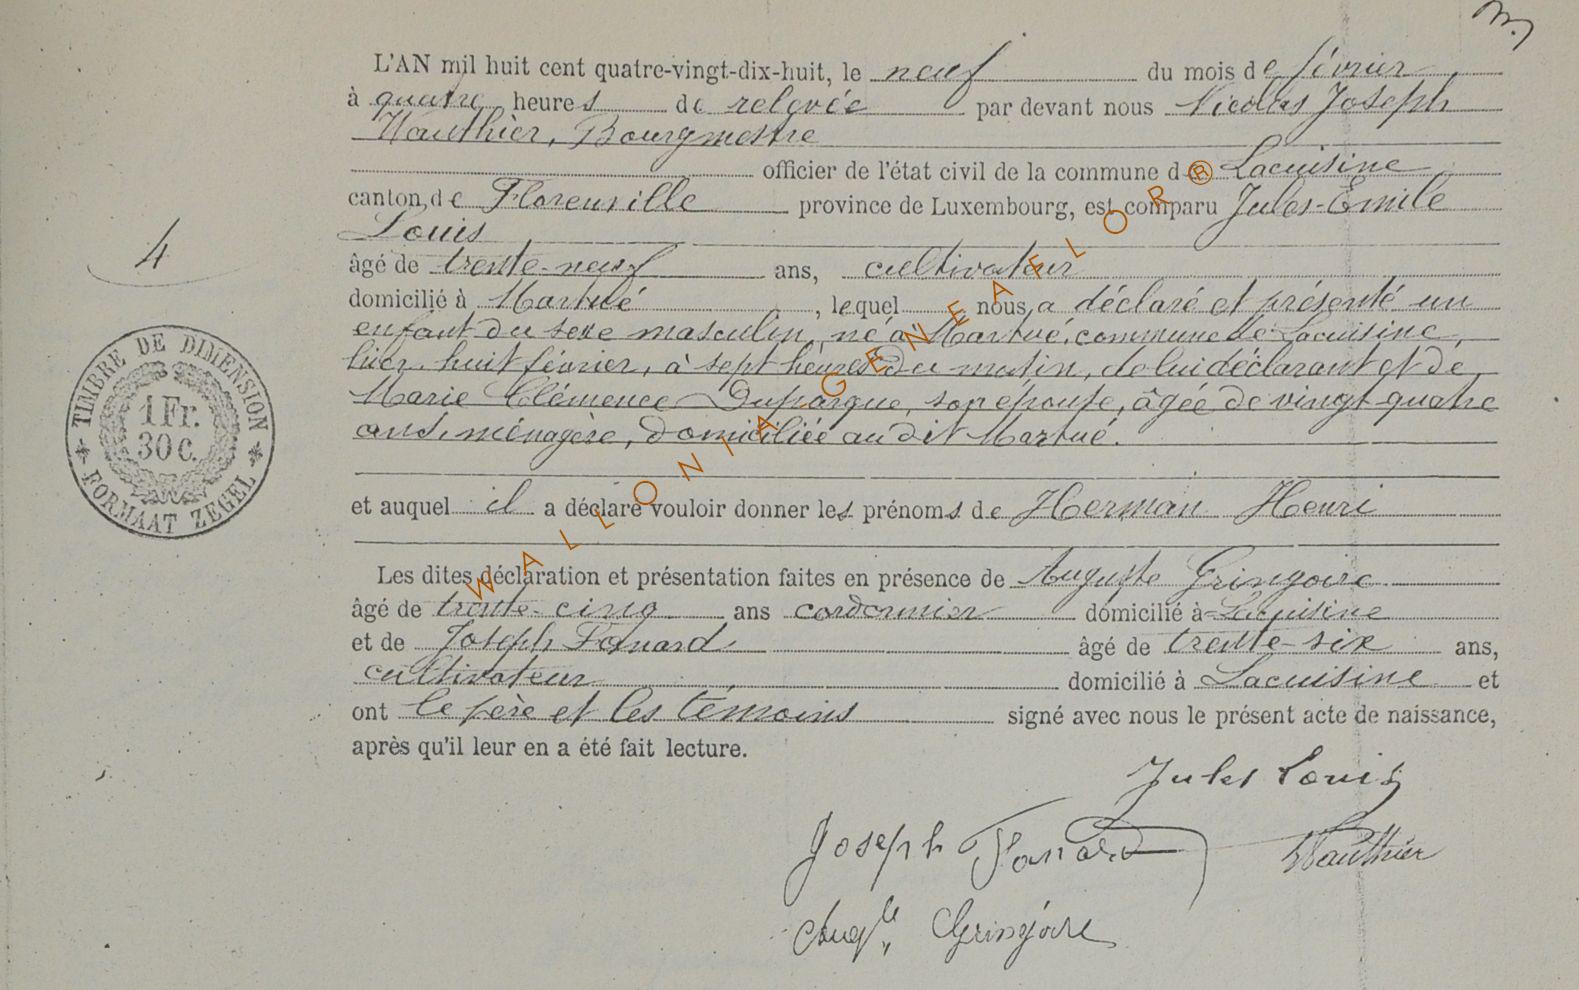 L'AN mil huit cent quatre-vingt-dix-huit, le neuf du mois de février
à quatre heures de relevée par devant nous Nicolas Joseph
Wauthier, Bourgmestre
officier de l'état civil de la commune de Lacuisine
canton de Florenville province de Luxembourg, est comparu Jules-Emile
Louis
âgé de trente-neuf ans, cultivateur
domicilié à Martué, lequel nous a déclaré et présenté un
enfant du sexe masculin, né à Martué, commune de Lacuisine,
hier, huit février, à sept heures du matin, de lui déclarant et de
Marie Clémence Duparque, son épouse, âgée de vingt-quatre
ans, ménagère, domiciliée au dit Martué.
et auquel il a déclaré vouloir donner les prénoms de Herman Henri
Les dites déclaration et présentation faites en présence de Auguste Gringoire
âgé de trente-cinq ans cordonnier domicilié à Lacuisine
et de Joseph Fonard âgé de trente-six ans,
cultivateur domicilié à Lacuisine et
ont le père et les témoins signé avec nous le présent acte de naissance,
après qu'il leur en a été fait lecture.
Jules Louis
Joseph Wauthier
Augte Gringoire
4
TIMBRE DE DIMENSION
1 Fr.
30 C.
FORMAAT ZEGEL
WALLONIA GENEAFLOR ®